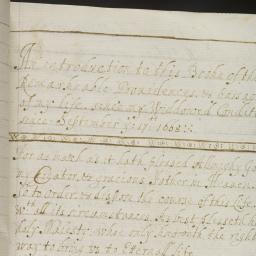 An introduction to this Booke of the
Remarkeable Prouidences, & Passag
of my life, since my Widdowed Condit
since September ye 1668
For as much as it hath pleased Allmighty Go
my Creator, & gracious Father in Heauen
So to order, & dispose the course of this life,
wth all its circumstances, As best pleaseth h
holy Maiesty, who only knoweth the right
way to bring us to Eternall life